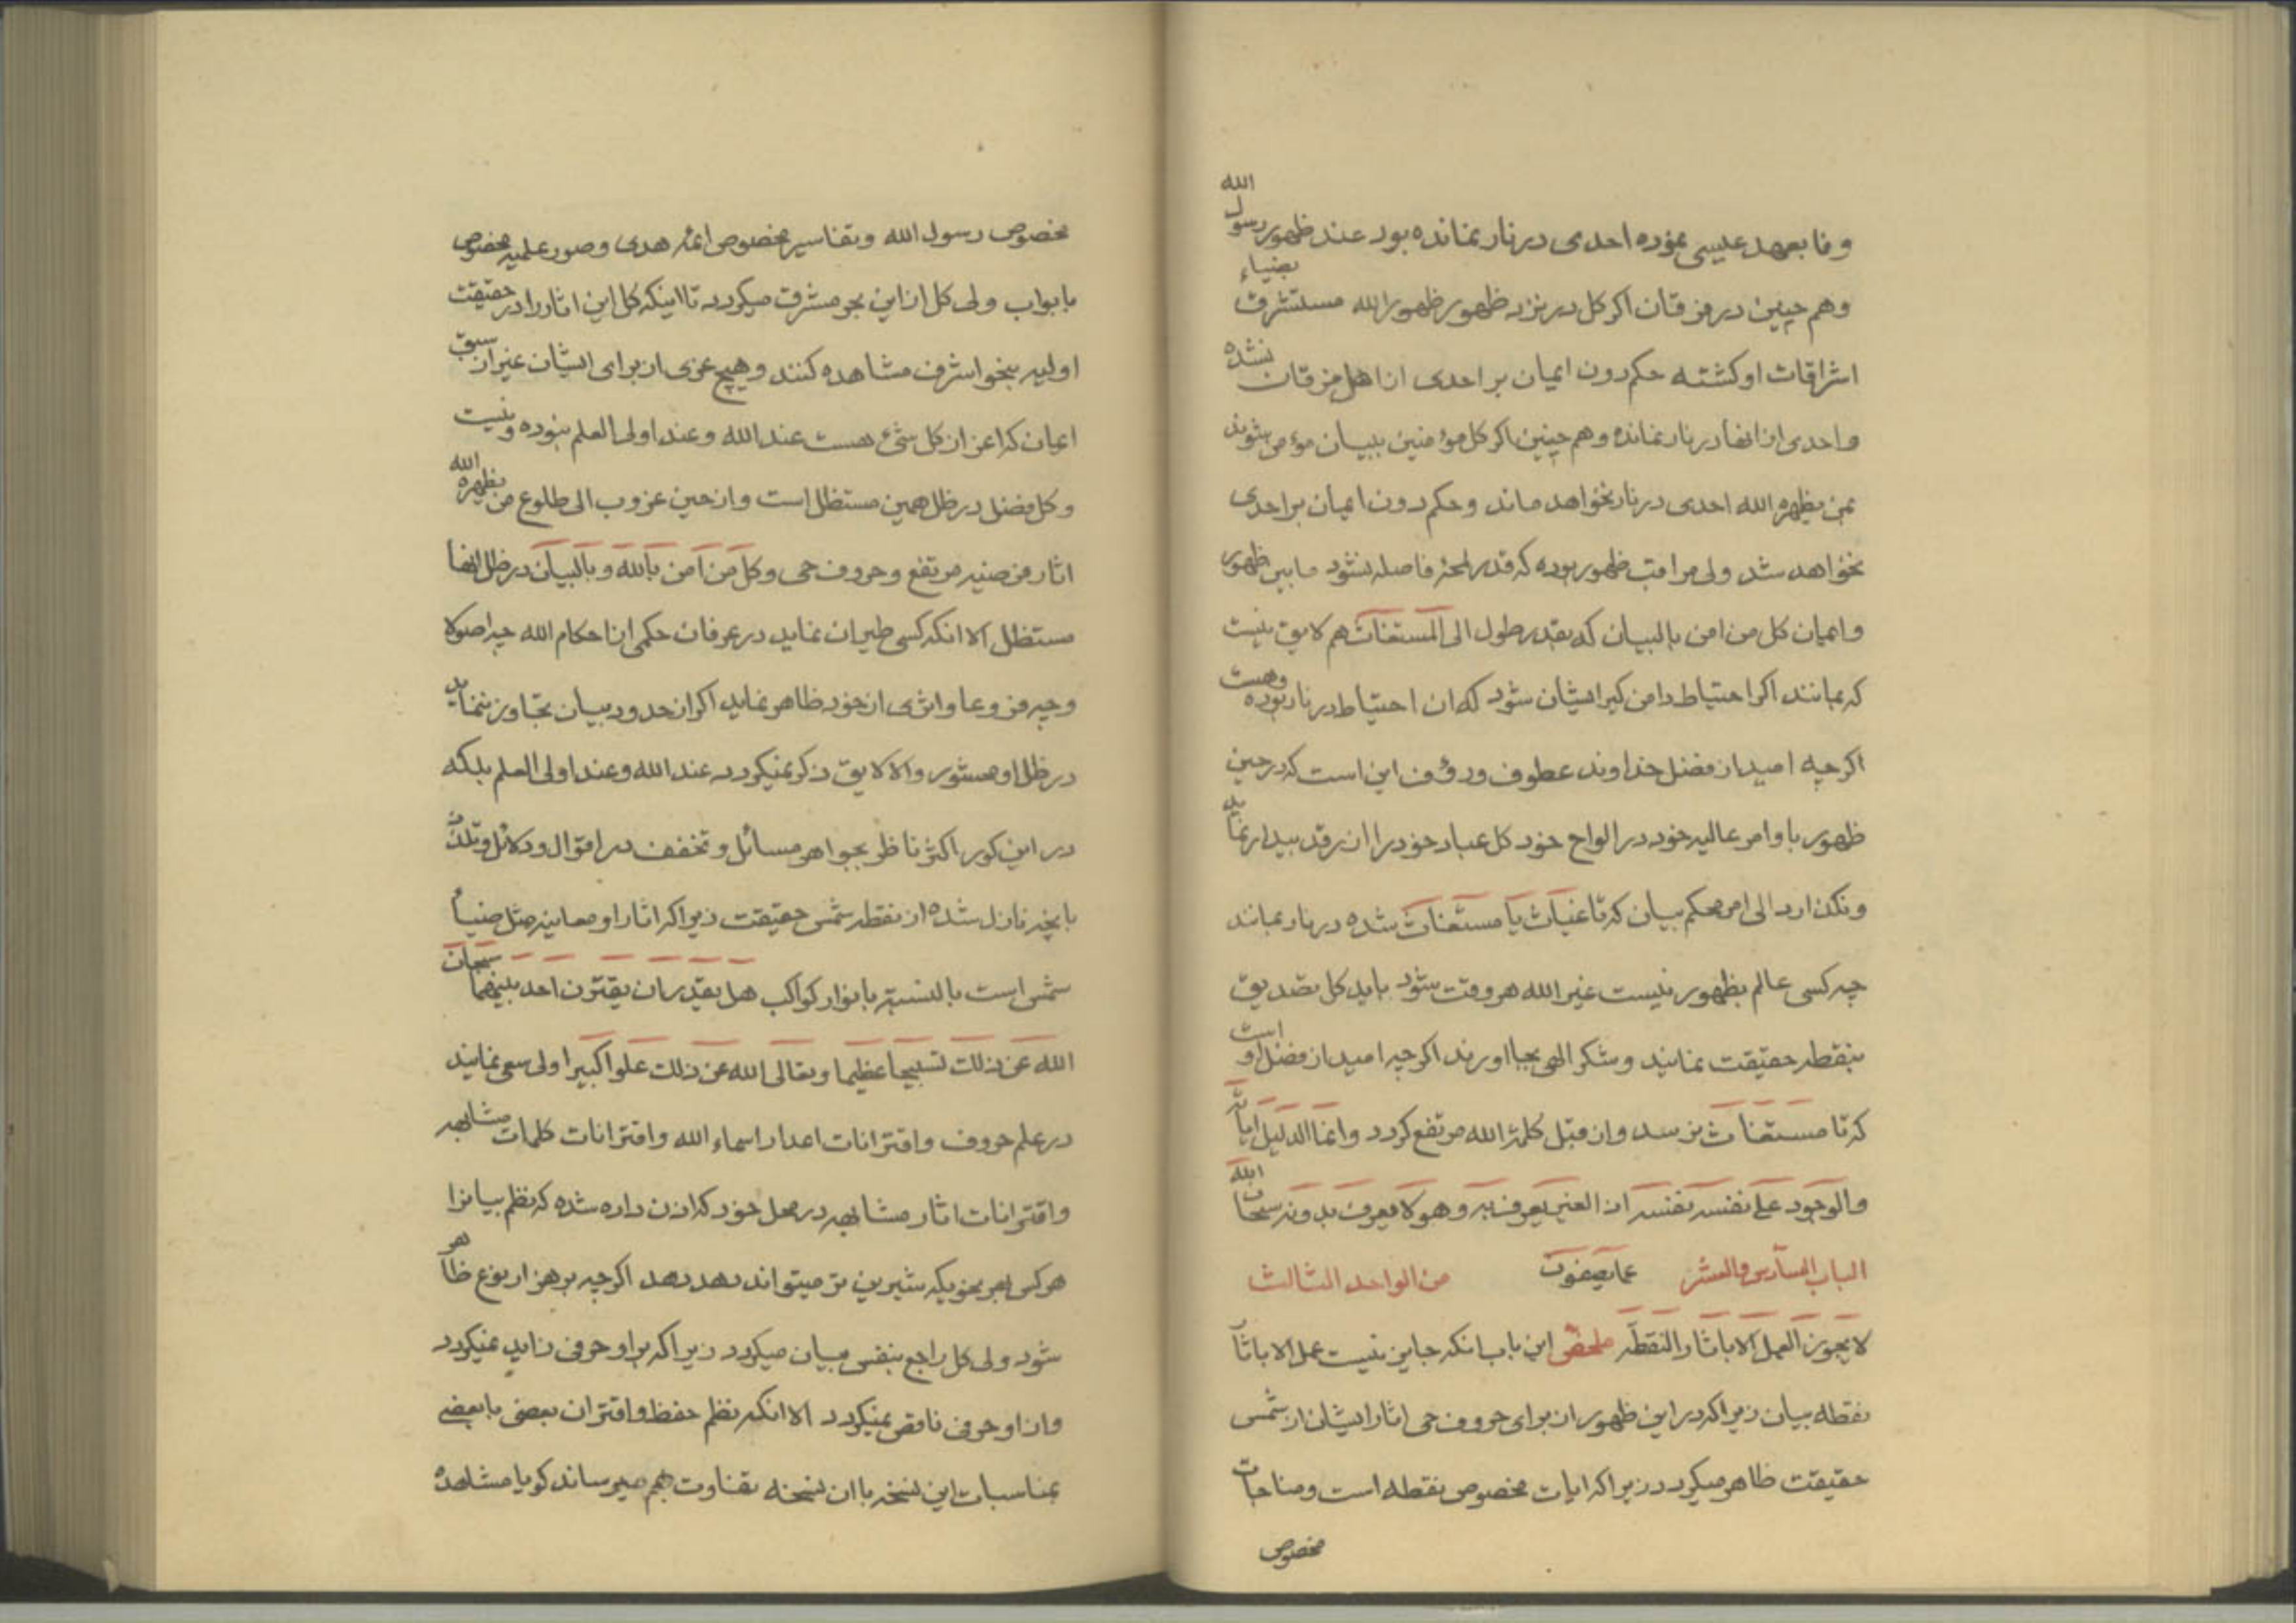 وفا بعهد عیسی نموده احدی در نار نمانده بود عند ظهور رسول الله
وهم چنین در فرقان اکر کل در نزد ظهور ظهور الله مستشرق بضیاء
اشراقات او کشته حکم دون ایمان بر احدی از اهل فرقان نشده
واحدی از انها در نار نمانده وهم چنین اکر کل مؤمنین ببیان مؤمن شوند
بمن یظهره الله احدی در نار نخواهد ماند وحکم دون ایمان بر احدی
نخواهد شد ولی مراقب ظهور بوده که قدر لمحهٔ فاصله نشود مابین ظهور
وایمان کل من امن بالبیان که بقدر طول الی المستغاث هم لایق نیست
که بمانند اکر احتیاط دامن کیر ایشان شود که ان احتیاط در نار بوده وهست
اکر چه امید از فضل خداوند عطوف ورؤف این است که در حین
ظهور باوامر عالیه خود در الواح خود کل عباد خود را از رقد بیدار نماید
ونکذارد الی امر محکم بیان که تا غیاث یا مستغاث شده در نار بمانند
چه کسی عالم بظهور نیست غیر الله هر وقت شود باید کل تصدیق
بنقطه حقیقت نمایند وشکر الهی بجا اورند اکر چه امید از فضل او است
که تا مستغاث نرسد واز قبل کلمة الله مرتفع کردد وانما الدلیل ایاته
والوجود علی نفسه نفسه اذ الغیر یعرف به وهو لا یعرف بدونه سبحان الله
الباب السادس والعشر عما یصفون من الواحد الثالث
لا یجوز العمل الا باثار النقطه ملخص این باب انکه جایز نیست عمل الا باثار
نقطه بیان زیرا که در این ظهور از برای حروف حی اثار ایشان از شمس
حقیقت ظاهر میکردد زیرا که ایات مخصوص نقطه است ومناجات
مخصوص
مخصوص رسول الله وتفاسیر مخصوص ائمه هدی وصور علمیه مخصوص
بابواب ولی کل از این بحر مشرق میکردد تا اینکه کل این اثار را در حقیقت
اولیه بنحو اشرف مشاهده کنند وهیچ عزی از برای ایشان غیر از سبق
ایمان که اعز از کل شئ هست عند الله وعند اولی العلم نبوده ونیست
وکل فضل در ظل همین مستظل است واز حین غروب الی طلوع من یظهره الله
اثار مرضیه مرتفع وحروف حی وکل من امن بالله وبالبیان در ظل انها
مستظل الا انکه کسی طیران نماید در عرفان حکمی از احکام الله چه اصولا
وچه فروعا واثری از خود ظاهر نماید اکر از حدود بیان تجاوز ننماید
در ظل او مستور والا لایق ذکر نمیکردد عند الله وعند اولی العلم بلکه
در این کور اکثر ناظر بجواهر مسائل وتخفف در اقوال ودلائل وتلذذ
بانچه نازل شده از نقطه شمس حقیقت زیرا که اثار او معاینه مثل ضیاء
شمس است بالنسبة بانوار کواکب هل یقدر ان یقترن احد بینهما سبحان
الله عن ذلک تسبیحا عظیما وتعالی الله عن ذلک علوا کبیرا ولی سعی نمایند
در علم حروف واقترانات اعداد اسماء الله واقترانات کلمات مشابهه
واقترانات اثار مشابهه در محل خود که اذن داده شده که نظم بیانرا
هر کس بهر نحویکه شیرین تر میتواند دهد دهد اکر چه بر هزار نوع ظاهر
شود ولی کل راجع بنفس بیان میکردد زیرا که بر او حرفی زاید نمیکردد
واز او حرفی ناقص نمیکردد الا انکه نظم حفظ واقتران بعضی بابعضی
بمناسبات این نسخه با ان نسخه تفاوت بهم میرساند کویا مشاهده